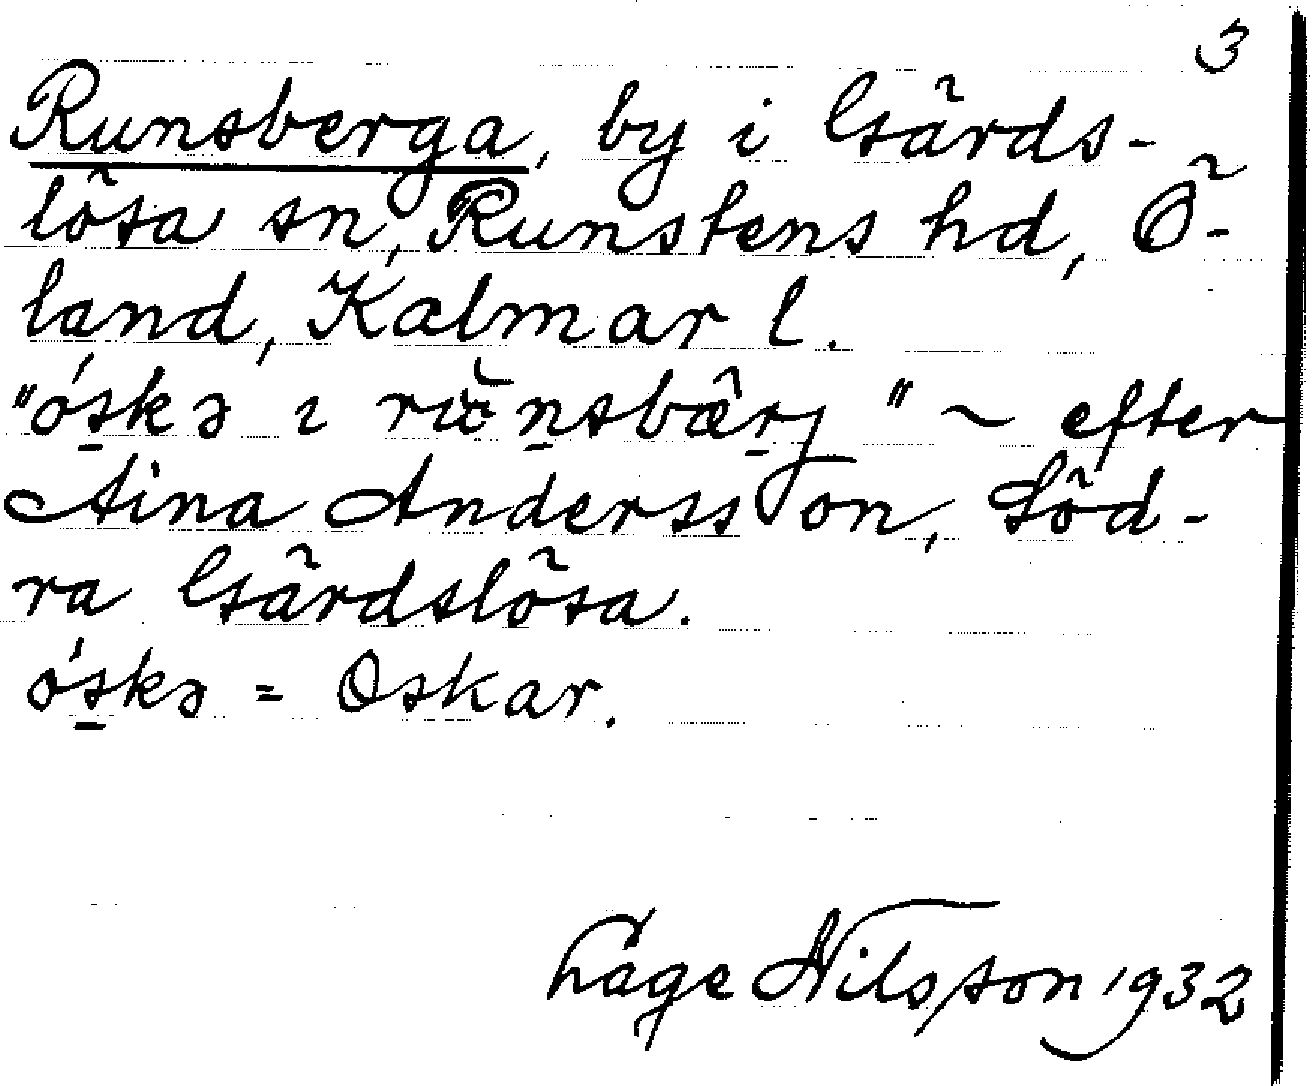 3
Runsberga, by i Gärds-
lösa sn, Runstens hd, Ö-
land, Kalmar l.
"óskə ı
" ~ efter
Aina Andersson, Söd-
ra Gärdslösa.
óskə = Oskar.
Lage Nilsson 1932